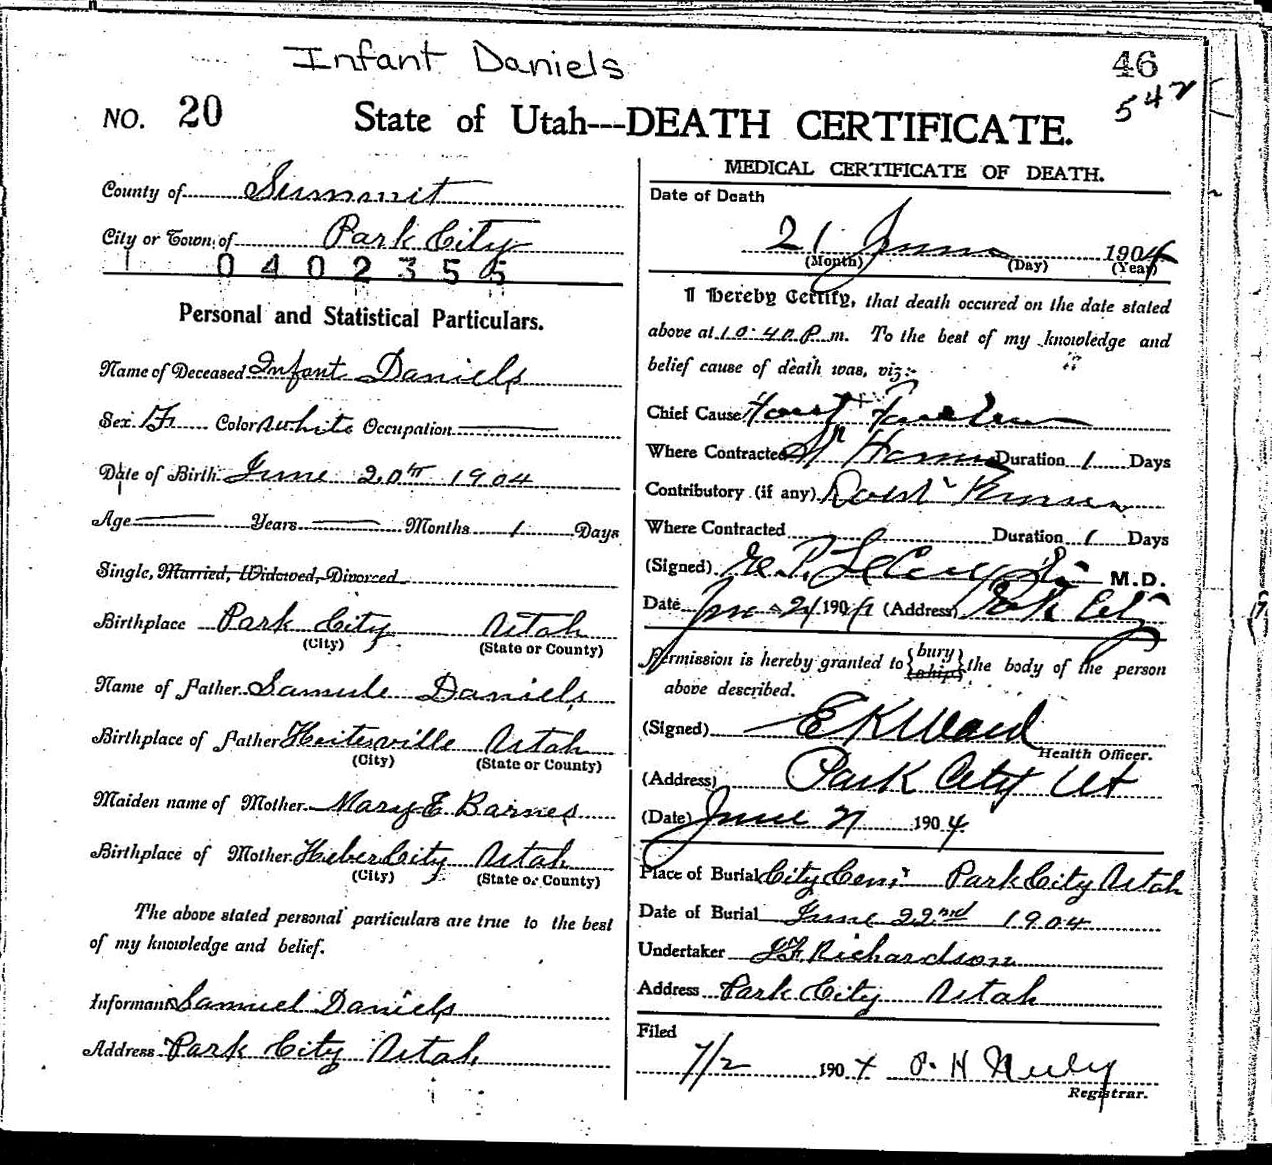 Infant Daniels
46
542
NO. 20 State of Utah---DEATH CERTIFICATE.
County of Summit
City or Town of Park City
0402355
Personal and Statistical Particulars.
Name of Deceased Infant Daniels
Sex F Color White Occupation
Date of Birth June 20th 1904
Age Years Months 1 Days
Single, Married, Widowed, Divorced
Birthplace Park City Utah
(City) (State or County)
Name of Father Samule Daniels
Birthplace of Father Utah
(City) (State or County)
Maiden name of Mother Mary E Barnes
Birthplace of Mother Heber City Utah
(City) (State or County)
The above stated personal particulars are true to the best
of my knowledge and belief.
Informant Samuel Daniels
Address Park City Utah
MEDICAL CERTIFICATE OF DEATH.
Date of Death
21 June 1904
(Month) (Day) (Year)
I Hereby Certify, that death occured on the date stated
above at 10:40 P. m. To the best of my knowledge and
belief cause of death was, viz:-
Chief Cause
Where Contracted At Home Duration 1 Days
Contributory (if any)
Where Contracted Duration 1 Days
(Signed) M.D.
Date 21 1904 (Address) Park City
Permission is hereby granted to {bury
{ship} the body of the person
above described.
(Signed) E K Ward
Health Officer.
(Address) Park City Ut
(Date) June 21 1904
Place of Burial City Cem. Park City Utah
Date of Burial June 22nd 1904
Undertaker Richardson
Address Park City Utah
Filed
7/2 1904 P. H
Registrar.